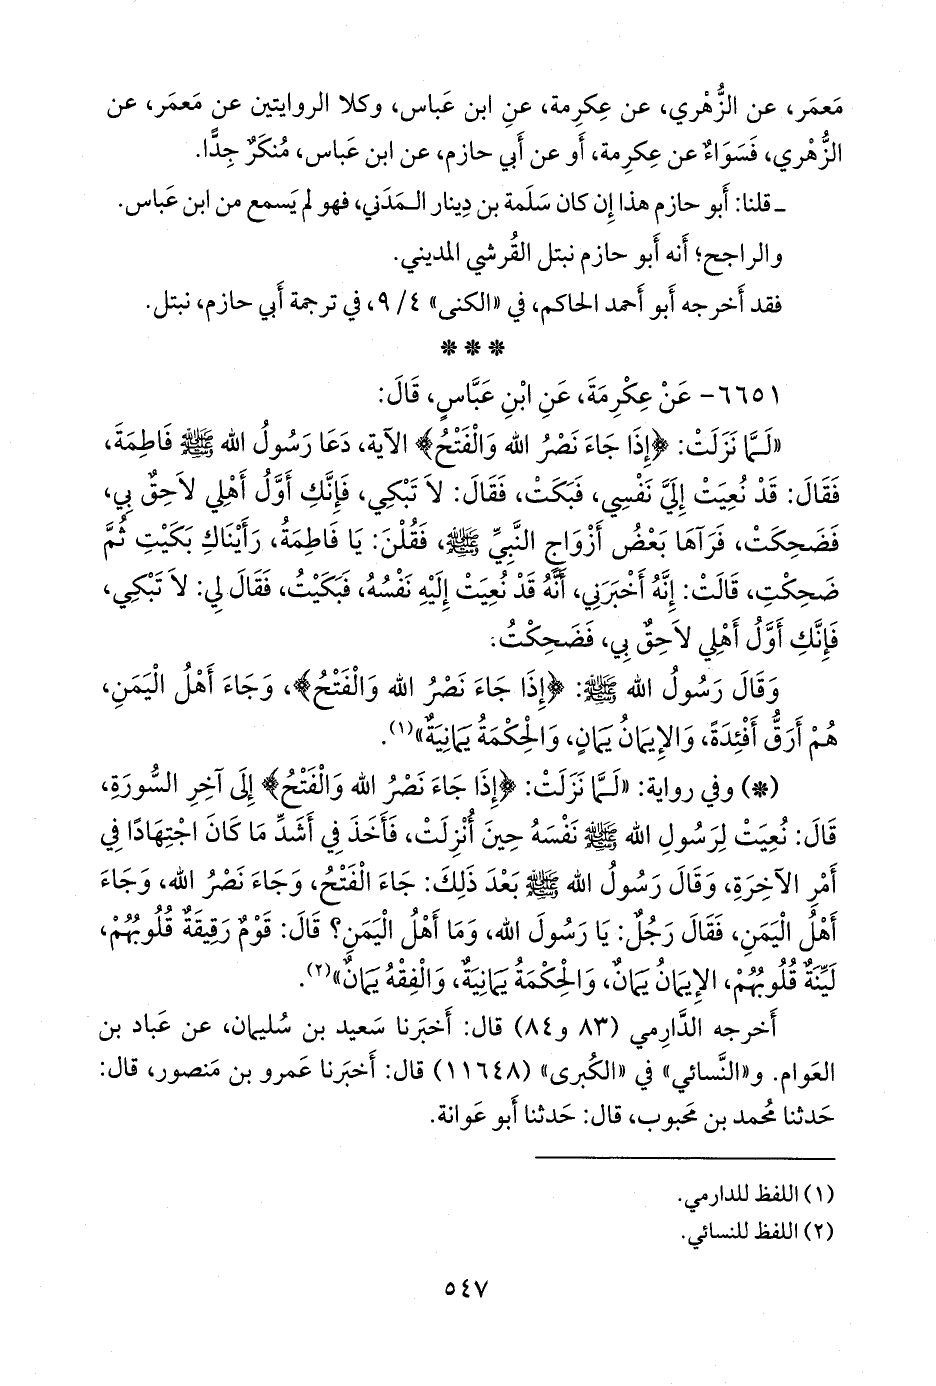 مَعمَر، عن الزُّهْري، عن عِكرِمة، عنِ ابن عَباس، وكلا الروايتين عن مَعمَر، عن
الزُّهْري، فَسَوَاءٌ عن عِكرِمة، أَو عن أَبي حازم، عن ابن عَباس، مُنكَرٌ جِدًّا.
ـ قلنا: أَبو حازم هذا إِن كان سَلَمة بن دِينار الـمَدَني، فهو لم يَسمع من ابن عَباس.
والراجح؛ أَنه أَبو حازم نبتل القُرشي المديني.
فقد أَخرجه أَبو أَحمد الحاكم، في «الكنى» ٤/ ٩، في ترجمة أَبي حازم، نبتل.
* * *
٦٦٥١- عَنْ عِكْرِمَةَ، عَنِ ابْنِ عَبَّاسٍ، قَالَ:
«لَـمَّا نَزَلَتْ: ﴿إِذَا جَاءَ نَصْرُ الله وَالْفَتْحُ﴾ الآية، دَعَا رَسُولُ الله ﷺ فَاطِمَةَ،
فَقَالَ: قَدْ نُعِيَتْ إِلَيَّ نَفْسِي، فَبَكَتْ، فَقَالَ: لاَ تَبْكِي، فَإِنَّكِ أَوَّلُ أَهْلِي لاَحِقٌ بِي،
فَضَحِكَتْ، فَرَآهَا بَعْضُ أَزْوَاجِ النَّبِيِّ ﷺ، فَقُلْنَ: يَا فَاطِمَةُ، رَأَيْنَاكِ بَكَيْتِ ثُمَّ
ضَحِكْتِ، قَالَتْ: إِنَّهُ أَخْبَرَنِي، أَنَّهُ قَدْ نُعِيَتْ إِلَيْهِ نَفْسُهُ، فَبَكَيْتُ، فَقَالَ لِي: لاَ تَبْكِي،
فَإِنَّكِ أَوَّلُ أَهْلِي لاَحِقٌ بِي، فَضَحِكْتُ.
وَقَالَ رَسُولُ الله ﷺ: ﴿إِذَا جَاءَ نَصْرُ الله وَالْفَتْحُ﴾، وَجَاءَ أَهْلُ الْيَمَنِ،
هُمْ أَرَقُّ أَفْئِدَةً، وَالإِيمَانُ يَمَانٍ، وَالْحِكْمَةُ يَمَانِيَةٌ»(١).
(*) وفي رواية: «لَـمَّا نَزَلَتْ: ﴿إِذَا جَاءَ نَصْرُ الله وَالْفَتْحُ﴾ إِلَى آخِرِ السُّورَةِ،
قَالَ: نُعِيَتْ لِرَسُولِ الله ﷺ نَفْسَهُ حِينَ أُنْزِلَتْ، فَأَخَذَ فِي أَشَدِّ مَا كَانَ اجْتِهَادًا فِي
أَمْرِ الآخِرَةِ، وَقَالَ رَسُولُ الله ﷺ بَعْدَ ذَلِكَ: جَاءَ الْفَتْحُ، وَجَاءَ نَصْرُ الله، وَجَاءَ
أَهْلُ الْيَمَنِ، فَقَالَ رَجُلٌ: يَا رَسُولَ الله، وَمَا أَهْلُ الْيَمَنِ؟ قَالَ: قَوْمٌ رَقِيقَةٌ قُلُوبُهُمْ،
لَيِّنَةٌ قُلُوبُهُمْ، الإِيمَانُ يَمَانٌ، وَالْحِكْمَةُ يَمَانِيَةٌ، وَالْفِقْهُ يَمَانٌ»(٢).
أَخرجه الدَّارِمي (٨٣ و٨٤) قال: أَخبَرنا سَعيد بن سُليمان، عن عَباد بن
العَوام. و«النَّسائي» في «الكُبرى» (١١٦٤٨) قال: أَخبَرنا عَمرو بن مَنصور، قال:
حَدثنا مُحمد بن مَحبوب، قال: حَدثنا أَبو عَوانة.
(١) اللفظ للدارمي.
(٢) اللفظ للنسائي.
٥٤٧